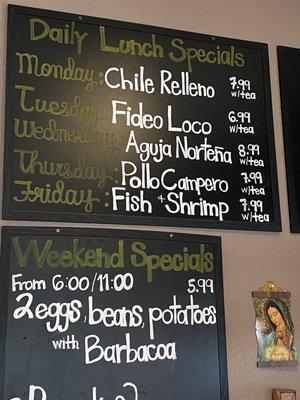 Daily Lunch Specials
Monday: Chile Relleno 7.99 w/tea
Tuesday: Fideo Loco 6.99 w/tea
Wednesday: Aguja Norteña 8.99 w/tea
Thursday: Pollo Campero 7.99 w/tea
Friday: Fish & Shrimp 7.99 w/tea
Weekend Specials
From 6:00/11:00 5.99
2 eggs, beans, potatoes
with Barbacoa